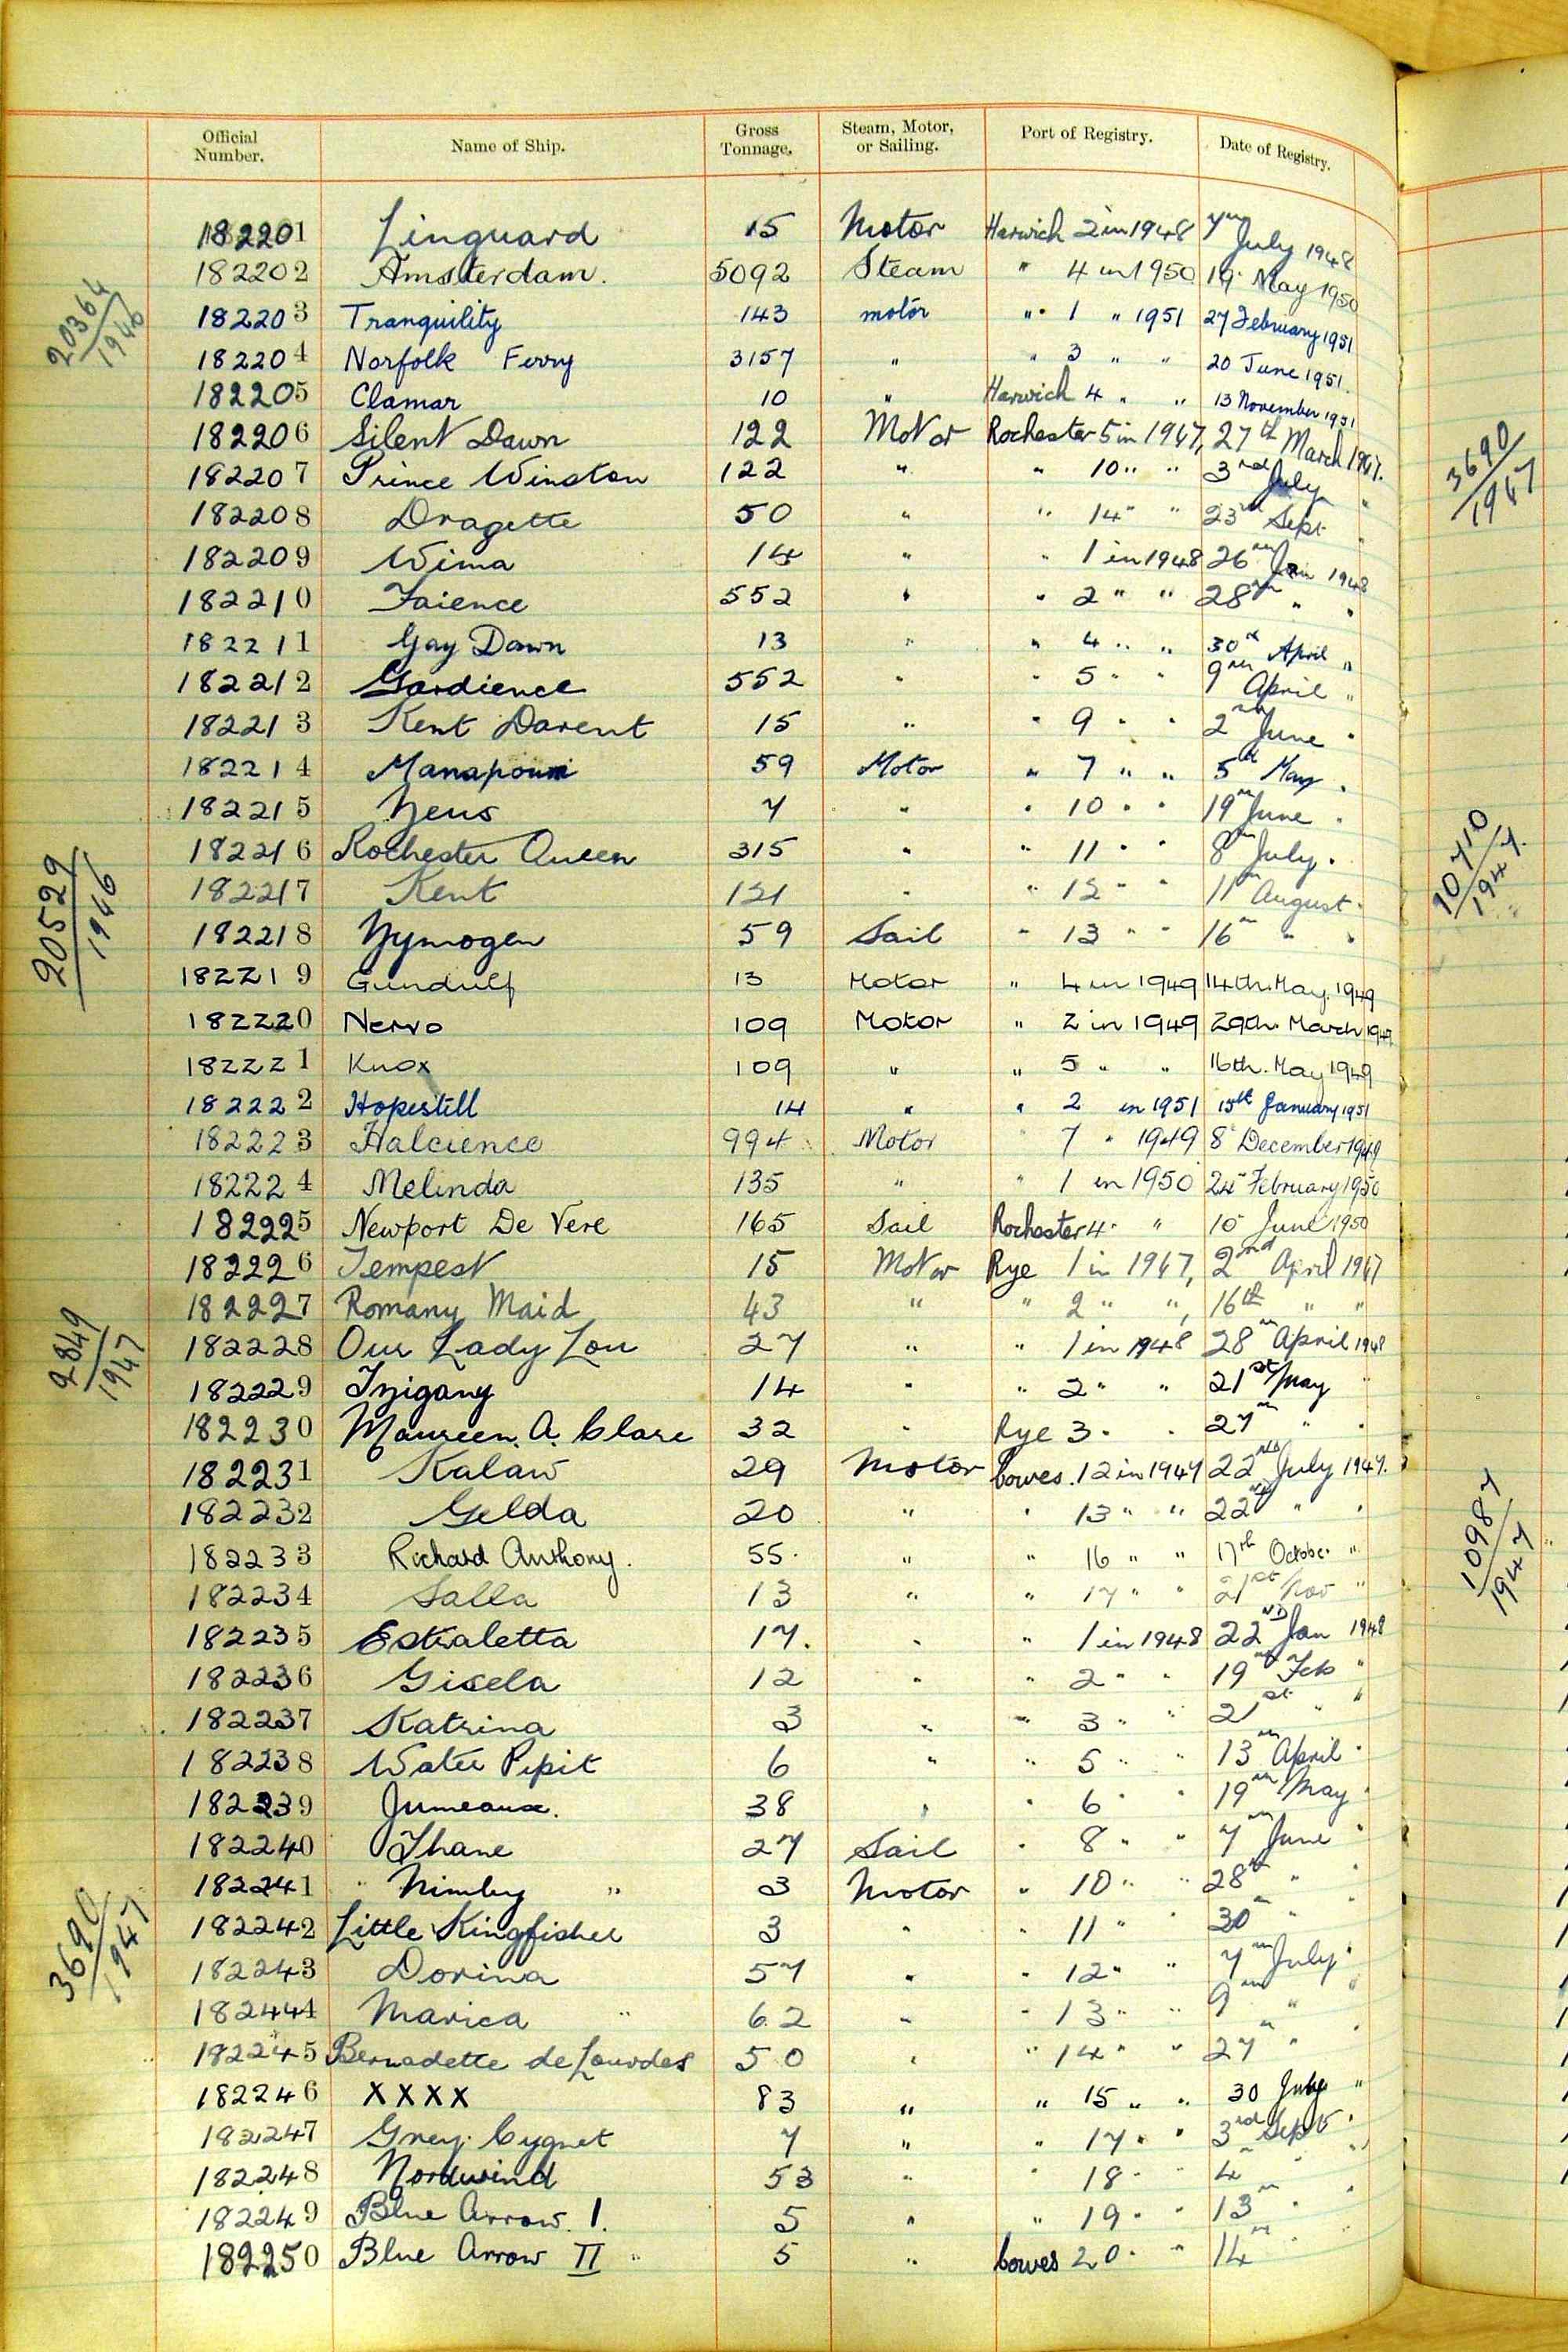 Official Number. Name of Ship. Gross Tonnage. Steam, Motor, or Sailing. Port of Registry. Date of Registry.
182201 Linguard 15 Motor Harwich 2 in 1948 7th July 1948
182202 Amsterdam. 5092 Steam " 4 in 1950 19 May 1950
182203 Tranquility 143 motor " 1 " 1951 27 February 1951
182204 Norfolk Ferry 3157 " " 3 " " 20 June 1951.
182205 Clamar 10 " Harwich 4 " " 13 November 1951
182206 Silent Dawn 122 Motor Rochester 5 in 1947, 27th March 1947.
182207 Prince Winston 122 " " 10 " " 3rd July "
182208 Dragette 50 " " 14 " " 23rd Sept "
182209 Wima 14 " " 1 in 1948 26th Jan 1948
182210 Faience 552 " " 2 " " 28th " "
182211 Gay Dawn 13 " " 4 " " 30th April "
182212 Gardience 552 " " 5 " " 9th April "
182213 Kent Darent 15 " " 9 " " 2nd June "
182214 Manapouri 59 Motor " 7 " " 5th May "
182215 Zeus 7 " " 10 " " 19th June "
182216 Rochester Queen 315 " " 11 " " 8th July "
182217 Kent 121 " " 12 " " 11th August "
182218 Zymogen 59 Sail " 13 " " 16th " "
182219 Gundulf 13 Motor " 4 in 1949 14th. May. 1949
182220 Nervo 109 Motor " 2 in 1949 29th. March 1949
182221 Knox 109 " " 5 " " 16th. May 1949
182222 Hopestill 14 " " 2 in 1951 15th January 1951
182223 Halcience 994 Motor " 7 " 1949 8 December 1949
182224 Melinda 135 " " 1 in 1950 24 February 1950
182225 Newport De Vere 165 Sail Rochester 4 " " 10 June 1950
182226 Tempest 15 Motor Rye 1 in 1947, 2nd April 1947
182227 Romany Maid 43 " " 2 " ", 16th " "
182228 Our Lady Lou 27 " " 1 in 1948 28th April 1948
182229 Tzigany 14 " " 2 " " 21st May "
182230 Maureen. A. Clare 32 " Rye 3 " " 27th " "
182231 Kalaw 29 Motor Cowes. 12 in 1947 22nd July 1947.
182232 Gelda 20 " " 13 " " 22nd " "
182233 Richard Anthony. 55. " " 16 " " 17th October "
182234 Salla 13 " " 17 " " 21st Nov "
182235 Estraletta 17. " " 1 in 1948 22nd Jan 1948
182236 Gisela 12 " " 2 " " 19th Feb "
182237 Katrina 3 " " 3 " " 21st " "
182238 Water Pipit 6 " " 5 " " 13th April "
182239 Jumeaux. 38 " " 6 " " 19th May "
182240 Thane 27 Sail " 8 " " 7th June "
182241 " Nimby " 3 Motor " 10 " " 28th " "
182242 Little Kingfisher 3 " " 11 " " 30th " "
182243 Dorina 57 " " 12 " " 7th July "
182444 Marica " 62 " " 13 " " 9th " "
182245 Bernadette de Lourdes 50 " " 14 " " 27th " "
182246 XXXX 83 " " 15 " " 30 July "
182247 Grey. Cygnet 7 " " 17 " " 3rd Sept "
182248 Nordwind 53 " " 18 " " 4th " "
182249 Blue Arrow. I. 5 " " 19 " " 13th " "
182250 Blue Arrow II " 5 " Cowes 20 " " 14th " "
20364/1946
20529/1946
2849/1947
3690/1947
3690/1947
10710/1947.
10987/1947